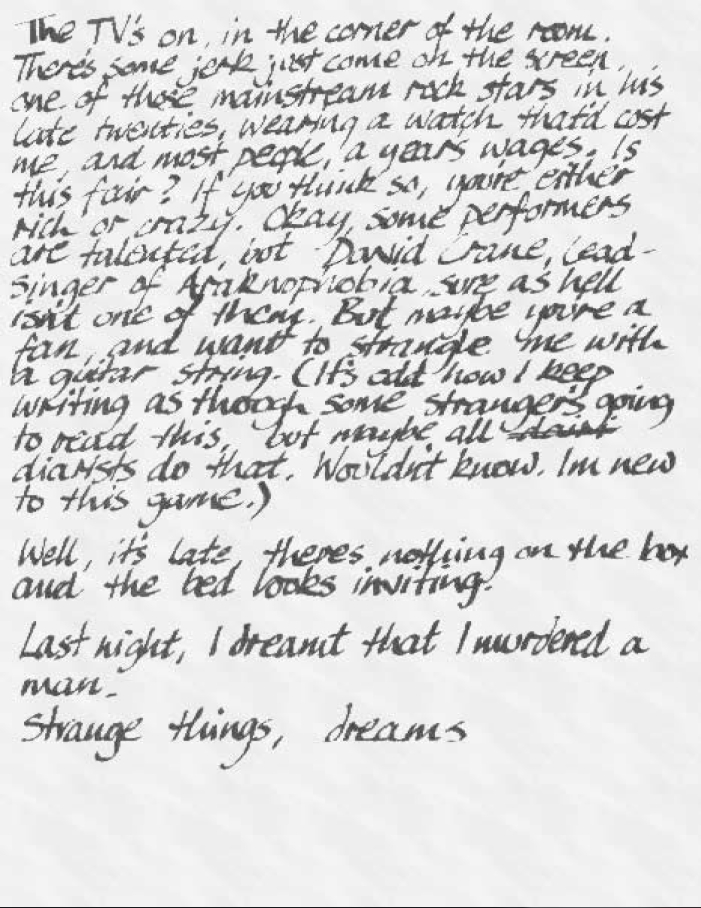 The TV's on, in the corner of the room.
There's some jerk just come on the screen,
one of those mainstream rock stars in his
late twenties, wearing a watch that'd cost
me, and most people, a years wages. Is
this fair? If you think so, you're either
rich or crazy. Okay, some performers
are talented, but David Crane, Lead-
singer of Araknophobia, sure as hell
isn't one of them. But maybe you're a
fan, and want to strangle me with
a guitar string. (It's odd how I keep
writing as though some stranger's going
to read this, but maybe all
diarists do that. Wouldn't know. I'm new
to this game.)
Well, it's late, there's nothing on the box
and the bed looks inviting.
Last night, I dreamt that I murdered a
man.
Strange things, dreams